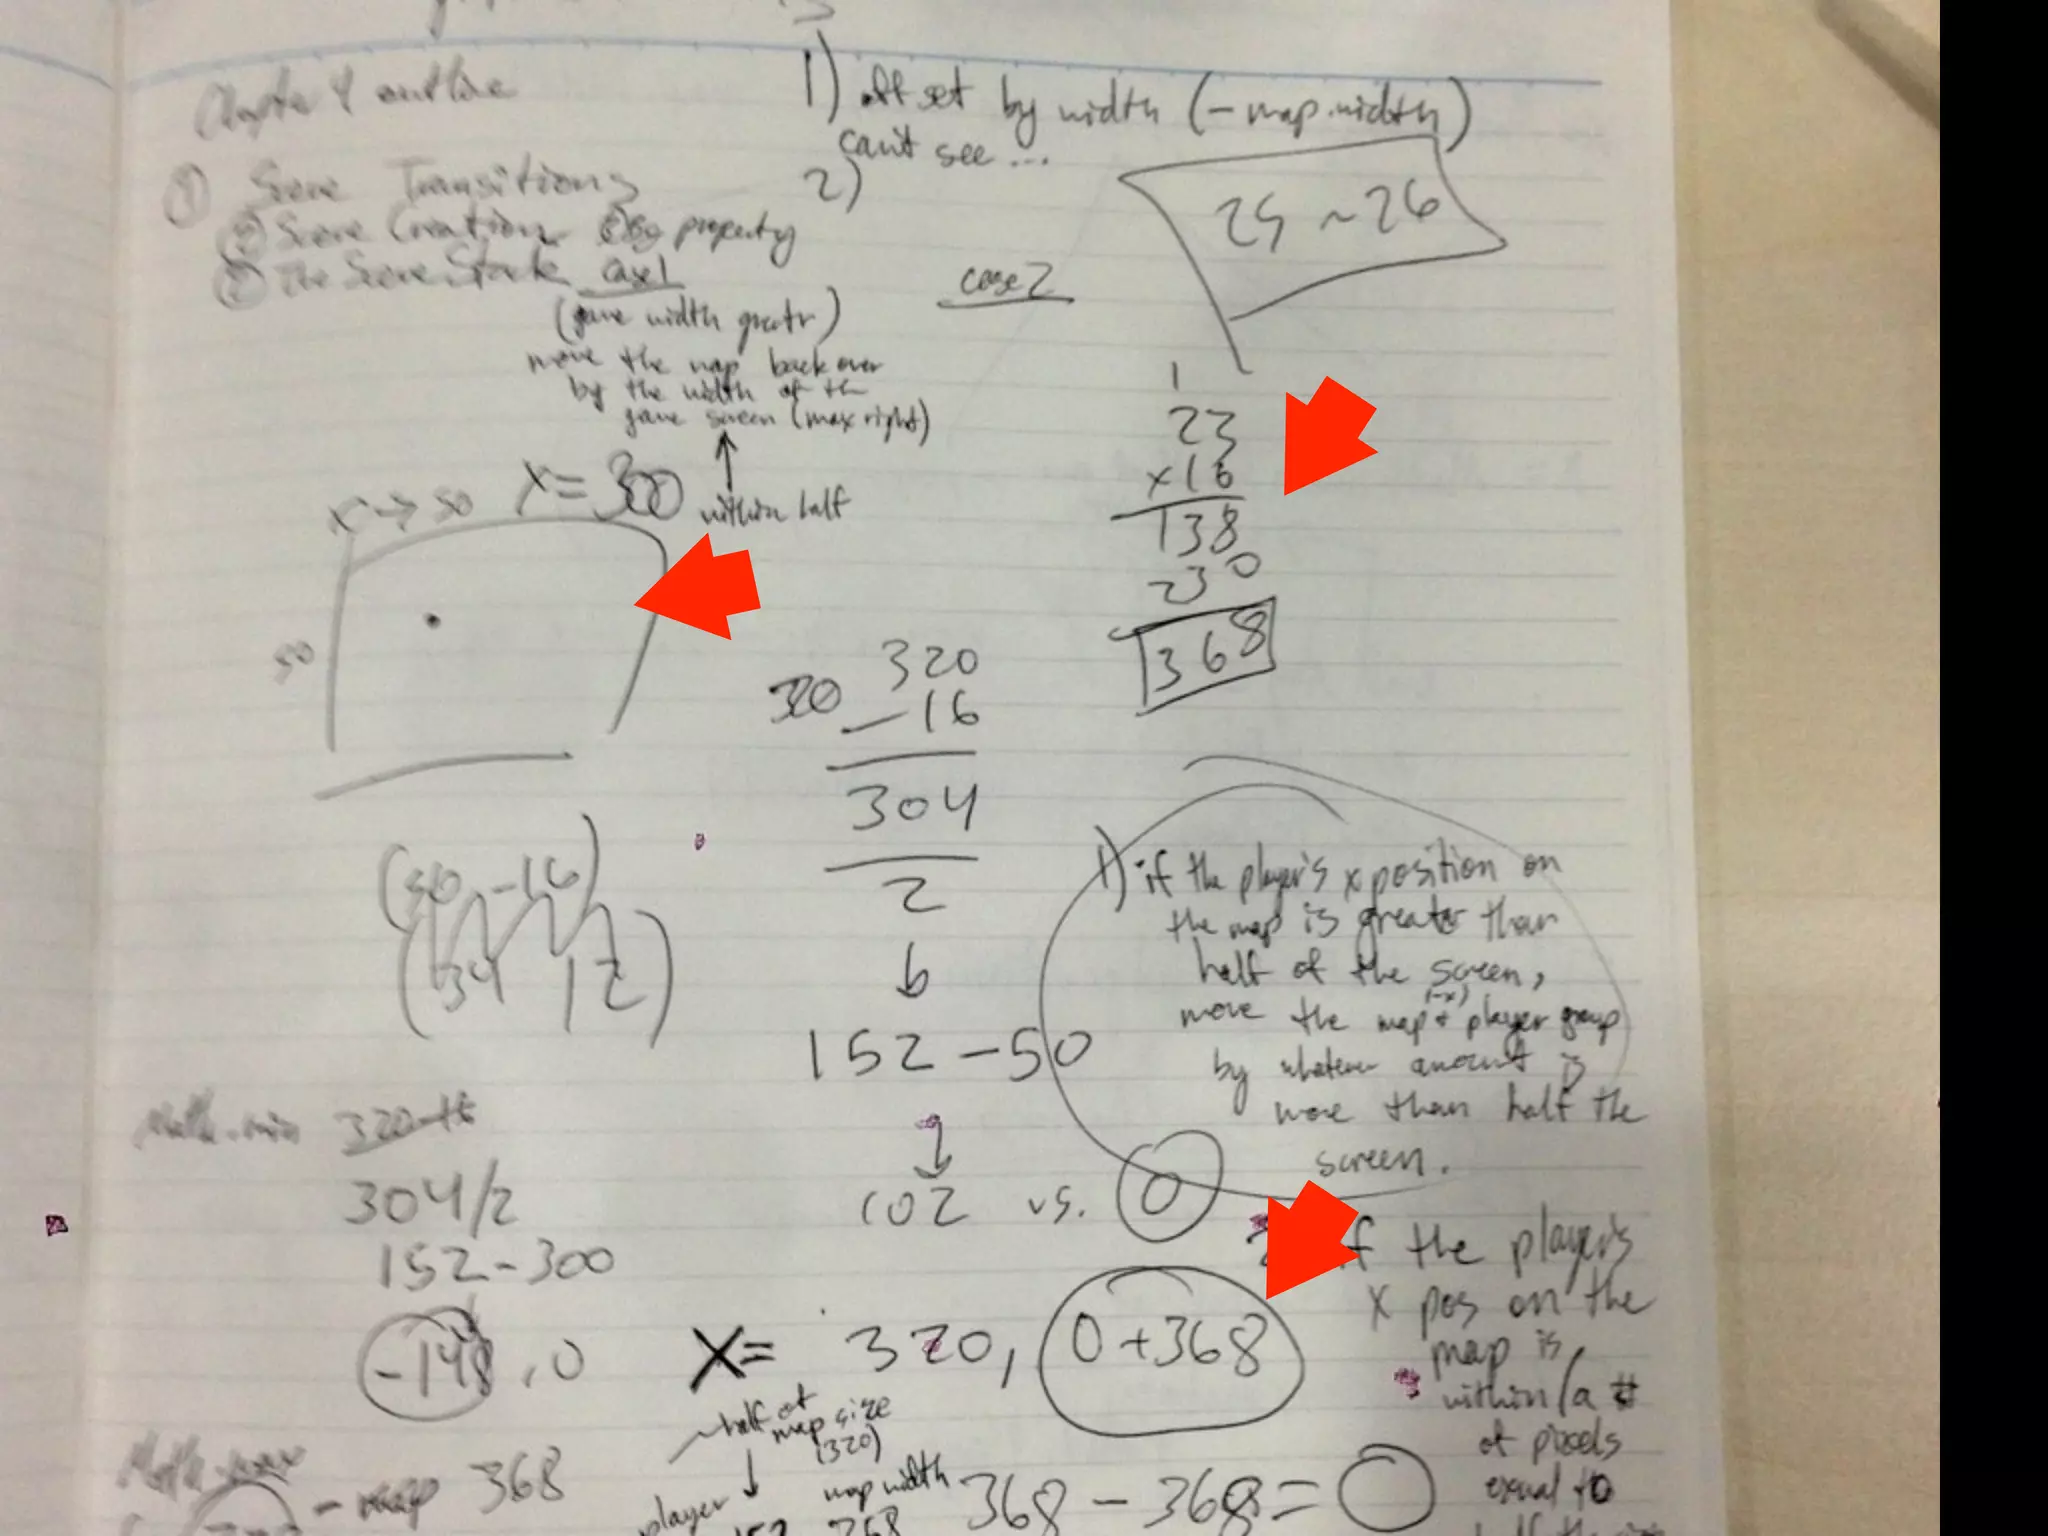 Chapter 4 outline
① Scene Transitions
② Scene Creation property
② The Scene Stack
1) offset by width (-map.width)
can't see...
2)
25 ~ 26
case 1
(game width greatr)
move the map back over
by the width of the
game screen (max right)
within half
case 2
x → 50
x = 300
50
1
23
x16
138
230
368
320
320
-16
304
2
↓
152 - 50
↓
102 vs. 0
(50, -16)
(34 12)
Math.min 320-16
304/2
152 - 300
-148, 0
1) if the player's x position on
the map is greater than
half of the screen,
(-x)
move the map + player group
by whatever amount is
more than half the
screen.
if the player's
x pos on the
map is
within (a #
of pixels
equal to
x = 320, 0+368
half of
map size
(320)
↓
player
map width
152 368
368 - 368 = 0
Math.max
- map 368